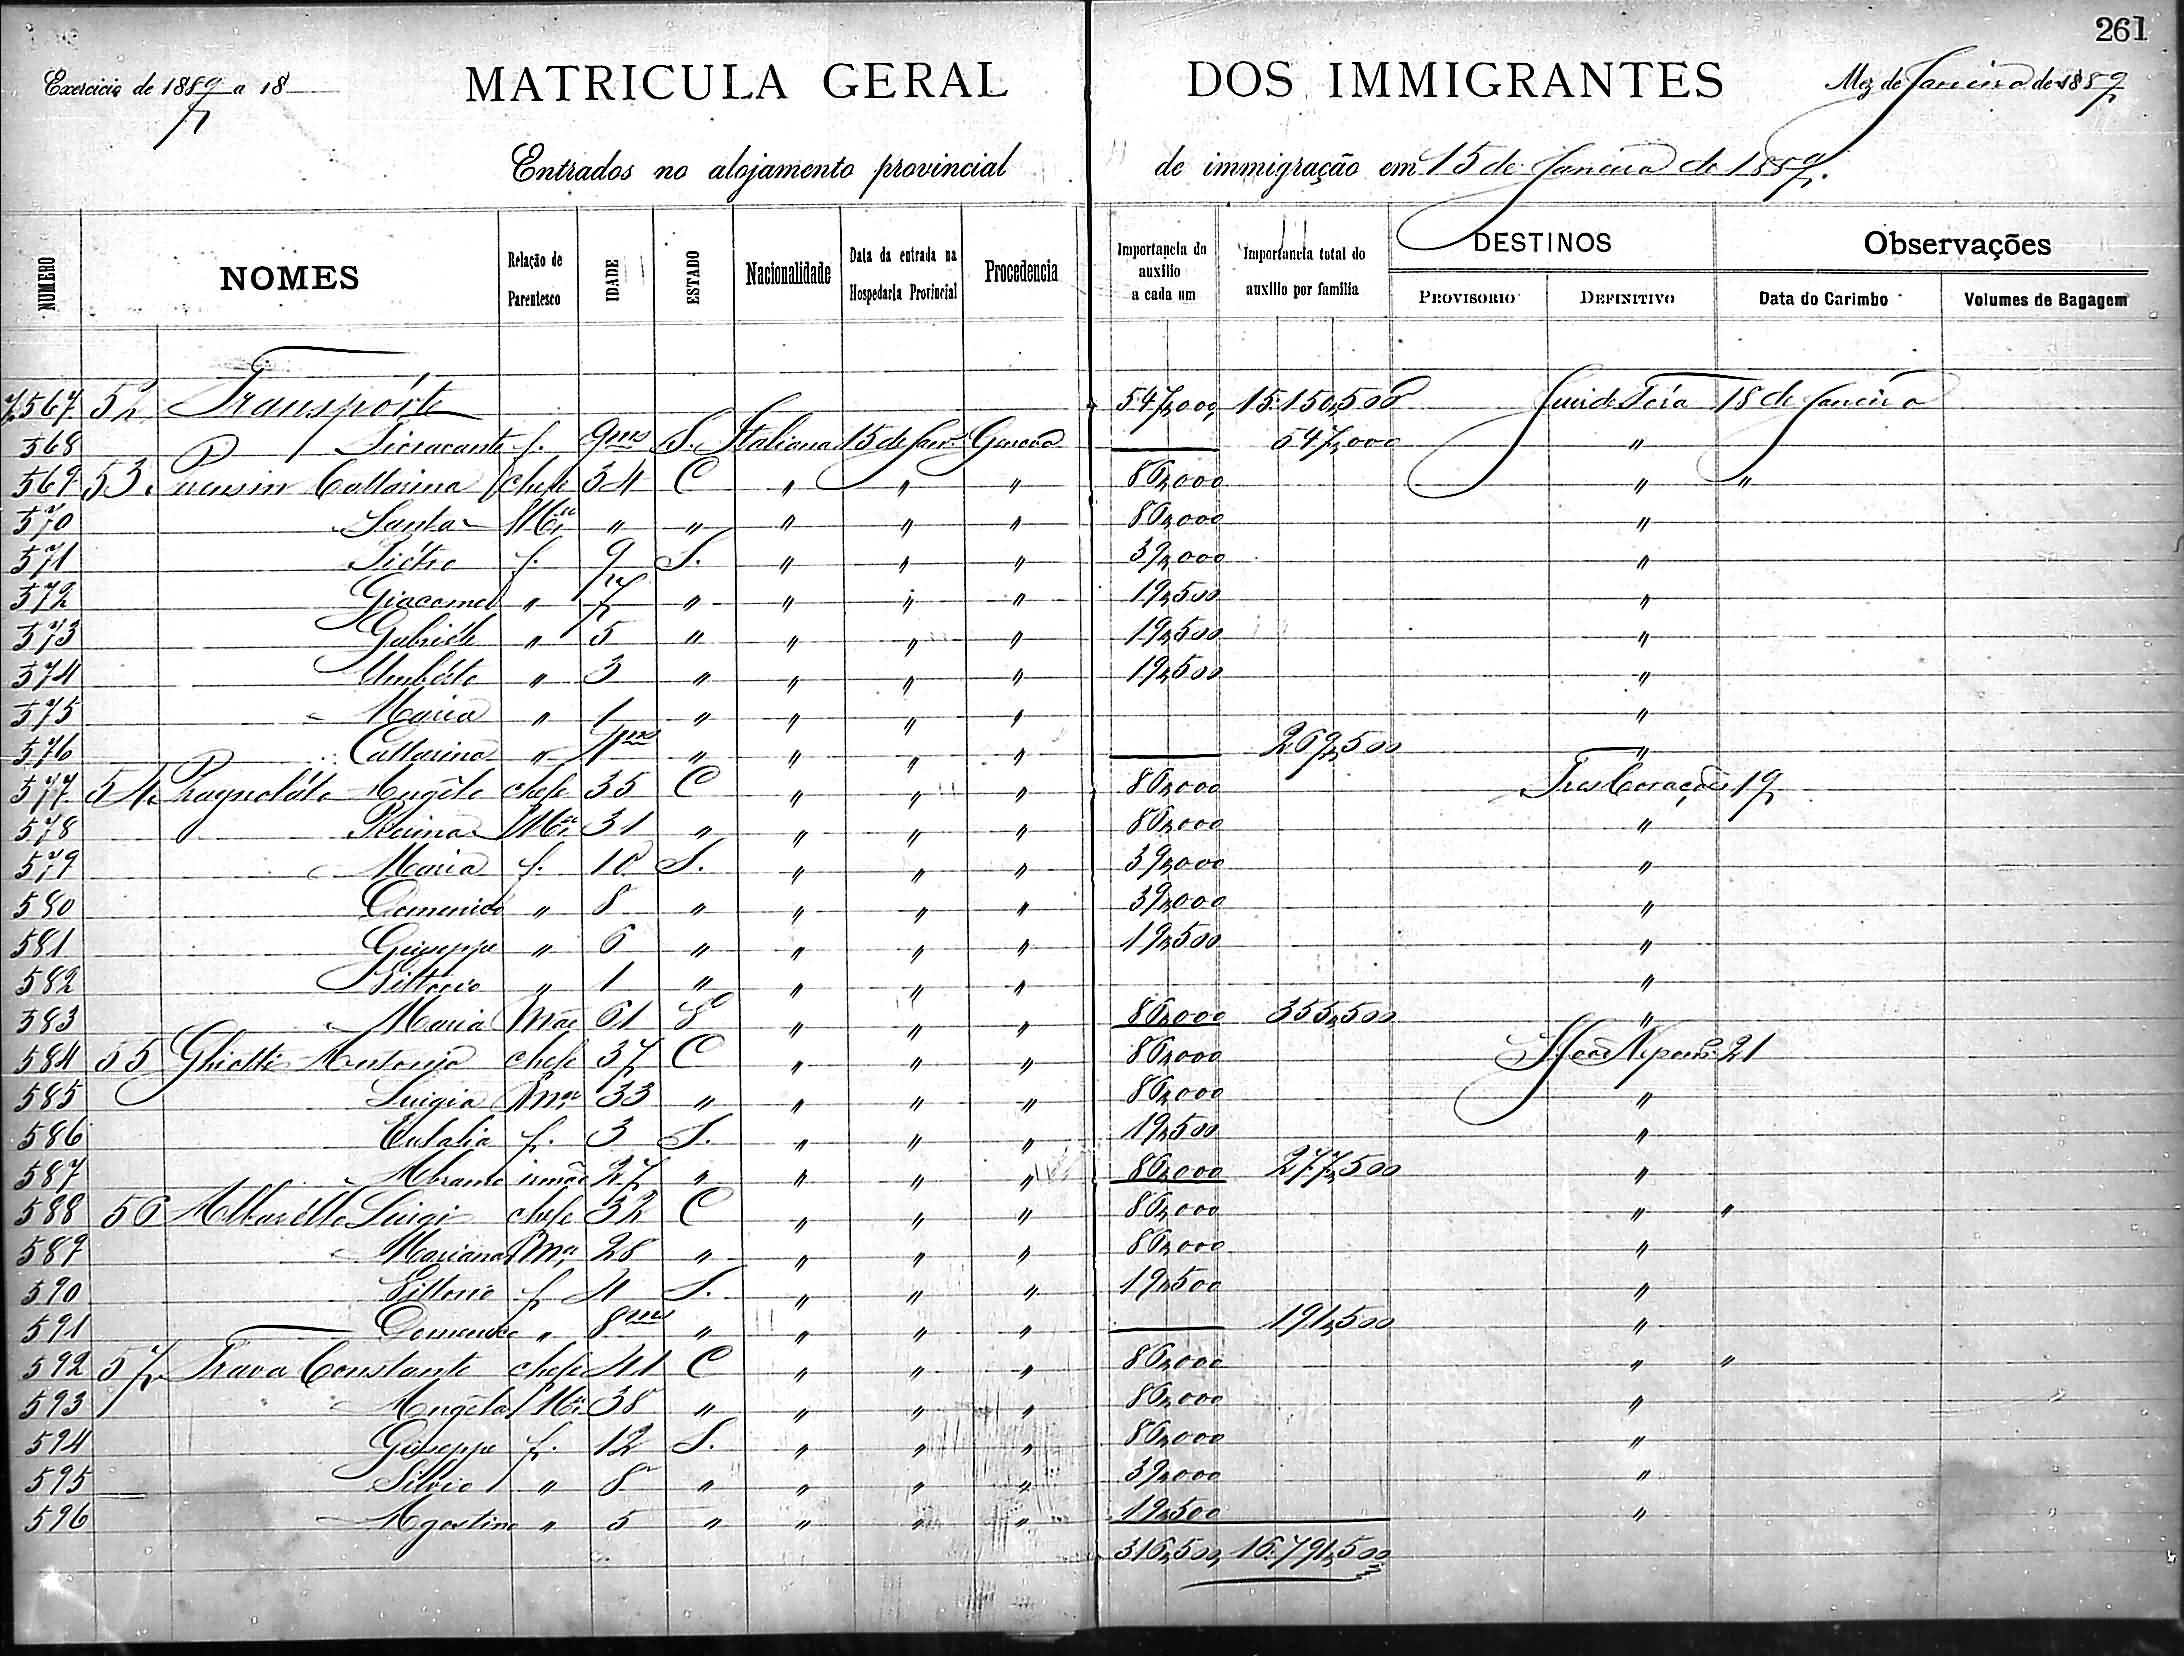 261
Exercicio de 1889 a 18
MATRICULA GERAL DOS IMMIGRANTES
Mez de Janeiro de 1889
Entrados no alojamento provincial de immigração em 15 de Janeiro de 1889.
NUMERO NOMES Relação de Parentesco IDADE ESTADO Nacionalidade Data da entrada na Hospedaria Provincial Procedencia Importancia do auxilio a cada um Importancia total do auxilio por familia DESTINOS PROVISORIO DEFINITIVO Observações Data do Carimbo Volumes de Bagagem
7,567 52 Transpórte 547,000 15.150,500 Juiz de Fóra 18 de Janeiro
568 f. 9 ms S. Italiana 15 de Janr. Genova 547,000 "
569 53 Cattarina chefe 34 C " " " 86,000 " "
570 Santa Mer " " " " " 86,000 "
571 Piétro f. 9 S. " " " 39,000 "
572 Giacomo " 7 " " " " 19,500 "
573 Gabriele " 5 " " " " 19,500 "
574 Umbérto " 3 " " " " 19,500 "
575 Maria " 1 " " " " "
576 Cattarina " 1 ms " " " " 269,500 "
577 54 Angélo chefe 35 C " " " 86,000 Tres Corações 19
578 Mer 31 " " " " 86,000 "
579 Maria f. 10 S. " " " 39,000 "
580 Domenico " 8 " " " " 39,000 "
581 Giuseppe " 6 " " " " 19,500 "
582 Vittorio " 1 " " " " "
583 Maria Mãe 61 " " " 86,000 355,500 "
584 55 Ghiotti Antonio chefe 37 C " " " 86,000 S. João Nepom. 21
585 Luigia Mer 33 " " " " 86,000 "
586 Eulalia f. 3 S. " " " 19,500 "
587 Abramo irmão 27 " " " " 86,000 277,500 "
588 56 Albarello Luigi chefe 32 C " " " 86,000 " "
589 Mariana Mer 28 " " " " 86,000 "
590 Vittorio f. 4 S. " " " 19,500 "
591 Domenico " 8 ms " " " " 191,500 "
592 57 Trava Constante chefe 41 C " " " 86,000 " "
593 Angéla Mer 38 " " " " 86,000 "
594 Giuseppe f. 12 S. " " " 86,000 "
595 Silvio " 8 " " " " 39,000 "
596 Agostino " 5 " " " " 19,500 "
316,500 16.791,500